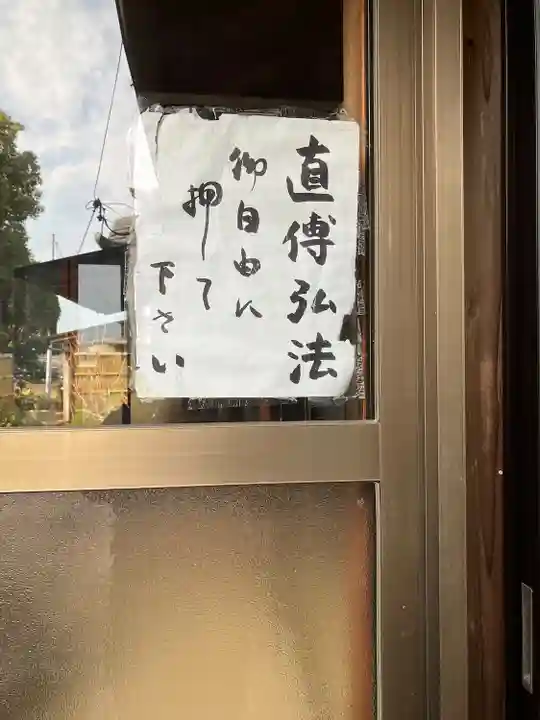 直傳弘法
御自由に
押して
下さい